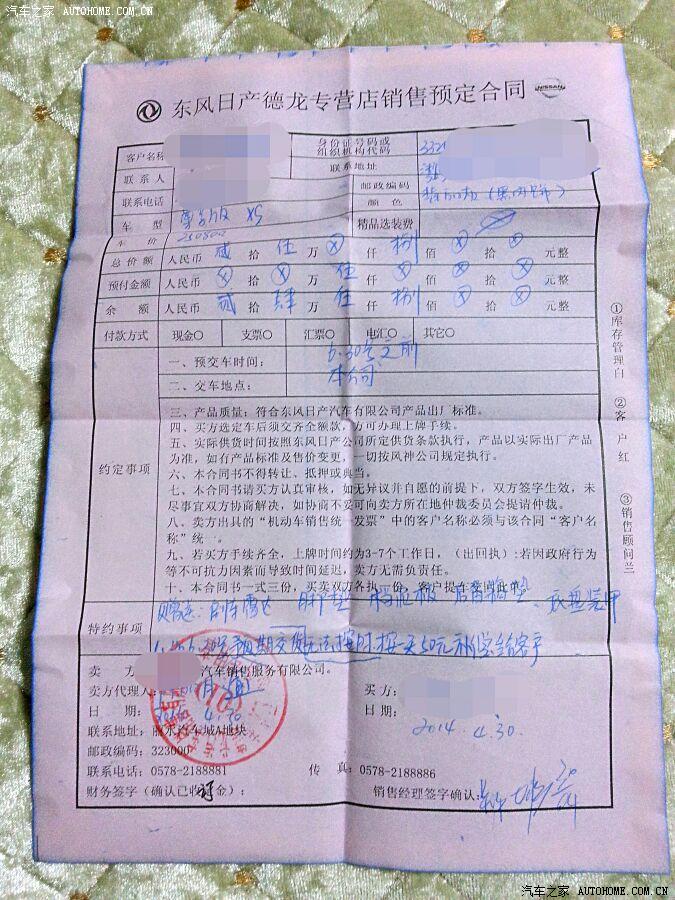 汽车之家 AUTOHOME.COM.CN
东风日产德龙专营店销售预定合同 NISSAN
客户名称
身份证号码或组织机构代码 332
联系人
联系地址
联系电话
邮政编码
颜色
车 型 XS
精品选装费
车 价 250800
总价额 人民币 贰 拾 伍 万 ⊗ 仟 捌 佰 ⊗ 拾 ⊗ 元整
预付金额 人民币 ⊗ 拾 ⊗ 万 伍 仟 ⊗ 佰 ⊗ 拾 ⊗ 元整
余 额 人民币 贰 拾 肆 万 伍 仟 捌 佰 ⊗ 拾 ⊗ 元整
付款方式 现金○ 支票○ 汇票○ 电汇○ 其它○
约定事项
一、预交车时间: 6.30号之前
二、交车地点: 本公司
三、产品质量：符合东风日产汽车有限公司产品出厂标准。
四、买方选定车后须交齐全额款，方可办理上牌手续。
五、实际供货时间按照东风日产公司所定供货条款执行，产品以实际出厂产品
为准，如有产品标准及售价变更，一切按风神公司规定执行。
六、本合同书不得转让、抵押或典当。
七、本合同书请买方认真审核，如无异议并自愿的前提下，双方签字生效，未
尽事宜双方协商解决，如协商不妥可向卖方所在地仲裁委员会提请仲裁。
八、卖方出具的“机动车销售统一发票”中的客户名称必须与该合同“客户名
称”统一。
九、若买方手续齐全，上牌时间约为3-7个工作日，（出回执）:若因政府行为
等不可抗力因素而导致时间延迟，卖方无需负责任。
十、本合同书一式三份，买卖双方各执一份，客户提车签回此单
特约事项
卖 方 汽车销售服务有限公司。
卖方代理人:
买方:
日 期: 4.30
日期: 2014.4.30
联系地址: 丽水汽车城A地块
邮政编码: 323000
联系电话: 0578-2188881 传 真: 0578-2188886
财务签字（确认已收订金）:
销售经理签字确认:
①库存管理白 ②客户红 ③销售顾问兰
汽车之家 AUTOHOME.COM.CN